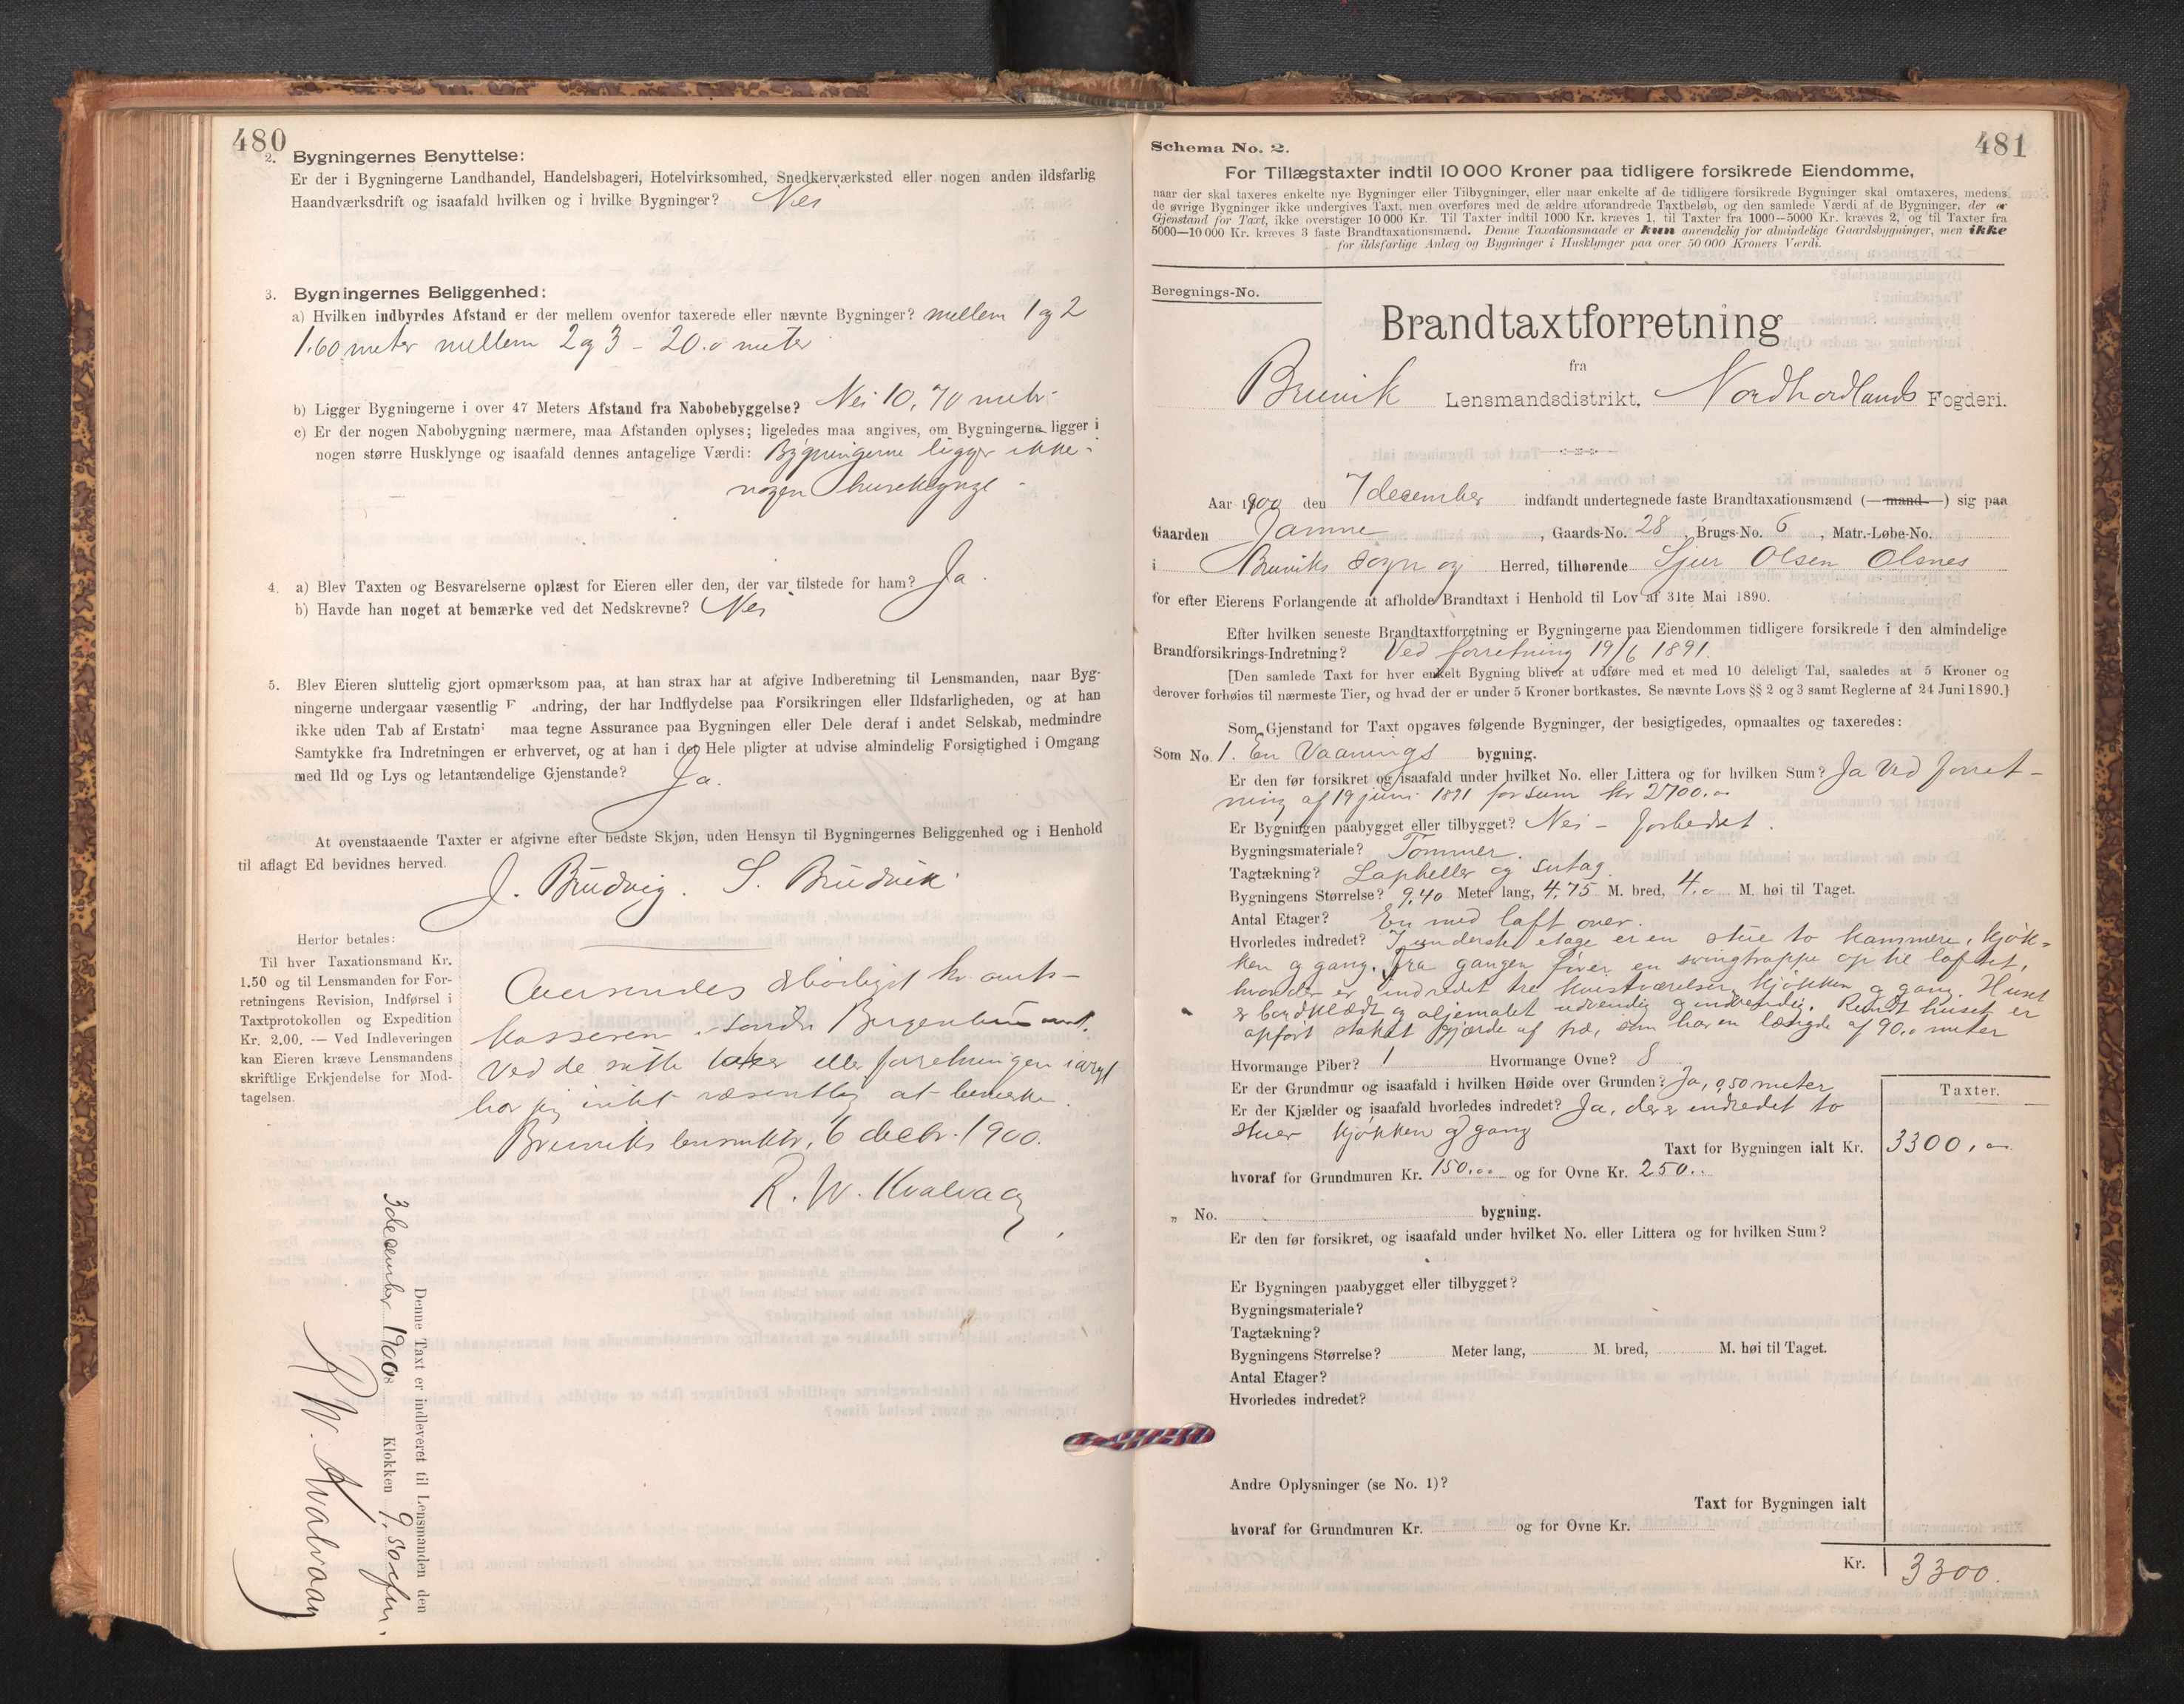 480
2. Bygningernes Benyttelse:
Er der i Bygningerne Landhandel, Handelsbageri, Hotelvirksomhed, Snedkerværksted eller nogen anden ildsfarlig
Haandværksdrift og isaafald hvilken og i hvilke Bygninger? Nei
3. Bygningernes Beliggenhed:
a) Hvilken indbyrdes Afstand er der mellem ovenfor taxerede eller nævnte Bygninger? mellem 1 og 2
1.60 meter mellem 2 og 3 - 20.0 meter
b) Ligger Bygningerne i over 47 Meters Afstand fra Nabobebyggelse? Nei 10,70 metr.
c) Er der nogen Nabobygning nærmere, maa Afstanden oplyses; ligeledes maa angives, om Bygningerne ligger i
nogen større Husklynge og isaafald dennes antagelige Værdi: Bygningerne ligger ikke i
nogen huseklynge
4. a) Blev Taxten og Besvarelserne oplæst for Eieren eller den, der var tilstede for ham? Ja.
b) Havde han noget at bemærke ved det Nedskrevne? Nei
5. Blev Eieren sluttelig gjort opmærksom paa, at han strax har at afgive Indberetning til Lensmanden, naar Byg-
ningerne undergaar væsentlig F andring, der har Indflydelse paa Forsikringen eller Ildsfarligheden, og at han
ikke uden Tab af Erstatn maa tegne Assurance paa Bygningen eller Dele deraf i andet Selskab, medmindre
Samtykke fra Indretningen er erhvervet, og at han i det Hele pligter at udvise almindelig Forsigtighed i Omgang
med Ild og Lys og letantændelige Gjenstande? Ja.
At ovenstaaende Taxter er afgivne efter bedste Skjøn, uden Hensyn til Bygningernes Beliggenhed og i Henhold
til aflagt Ed bevidnes herved.
J. Brudvig. S. Brudvik
Herfor betales:
Til hver Taxationsmand Kr.
1.50 og til Lensmanden for For-
retningens Revision, Indførsel i
Taxtprotokollen og Expedition
Kr. 2.00. — Ved Indleveringen
kan Eieren kræve Lensmandens
skriftlige Erkjendelse for Mod-
tagelsen.
Oversendes ærbødigst hr amt-
kasseren i søndre Bergenhus amt.
Ved de satte taxter eller forretningen iøvrigt
har jeg intet væsentlig at bemærke.
Bruviks lensmktr, 6 decbr. 1900.
R. W. Kvalvaag
Denne Taxt er indleveret til Lensmanden den
3 december 1900 Klokken 9,50 efm.
R W. Kvalvaag
481
Schema No. 2.
For Tillægstaxter indtil 10 000 Kroner paa tidligere forsikrede Eiendomme,
naar der skal taxeres enkelte nye Bygninger eller Tilbygninger, eller naar enkelte af de tidligere forsikrede Bygninger skal omtaxeres, medens
de øvrige Bygninger ikke undergives Taxt, men overføres med de ældre uforandrede Taxtbeløb, og den samlede Værdi af de Bygninger, der er
Gjenstand for Taxt, ikke overstiger 10 000 Kr. Til Taxter indtil 1000 Kr. kræves 1, til Taxter fra 1000—5000 Kr. kræves 2, og til Taxter fra
5000—10 000 Kr. kræves 3 faste Brandtaxationsmænd. Denne Taxationsmaade er kun anvendelig for almindelige Gaardsbygninger, men ikke
for ildsfarlige Anlæg og Bygninger i Husklynger paa over 50 000 Kroners Værdi.
Beregnings-No.
Brandtaxtforretning
fra
Bruvik Lensmandsdistrikt, Nordhordlands Fogderi.
Aar 1900 den 7 december indfandt undertegnede faste Brandtaxationsmænd (mand) sig paa
Gaarden Jamne, Gaards-No. 28 Brugs-No. 6, Matr.-Løbe-No.
i Bruviks sogn og Herred, tilhørende Sjur Olsen Olsnes
for efter Eierens Forlangende at afholde Brandtaxt i Henhold til Lov af 31te Mai 1890.
Efter hvilken seneste Brandtaxtforretning er Bygningerne paa Eiendommen tidligere forsikrede i den almindelige
Brandforsikrings-Indretning? Ved forretning 19/6 1891.
[Den samlede Taxt for hver enkelt Bygning bliver at udføre med et med 10 deleligt Tal, saaledes at 5 Kroner og
derover forhøies til nærmeste Tier, og hvad der er under 5 Kroner bortkastes. Se nævnte Lovs §§ 2 og 3 samt Reglerne af 24 Juni 1890.]
Som Gjenstand for Taxt opgaves følgende Bygninger, der besigtigedes, opmaaltes og taxeredes:
Som No. 1. En Vaanings bygning.
Er den før forsikret og isaafald under hvilket No. eller Littera og for hvilken Sum? Ja Ved forret-
ning af 19 juni 1891 for sum kr 2700.00
Er Bygningen paabygget eller tilbygget? Nei - forbedret.
Bygningsmateriale? Tømmer.
Tagtækning? Lapheller og sutag.
Bygningens Størrelse? 9,40 Meter lang, 4,75 M. bred, 4.0 M. høi til Taget.
Antal Etager? En med loft over.
Hvorledes indredet? I underste etage er en stue to kammere, kjøk-
ken og gang. fra gangen fører en svingtrappe op til loftet,
hvor der er indredet tre kvistværelser, kjøkken og gang. Huset
er bordklædt og oljemalet udvendig og indvendig. Rundt huset er
opført stakit gjærde af træ, som har en længde af 90.0 meter
Hvormange Piber? 1 Hvormange Ovne? 8
Er der Grundmur og isaafald i hvilken Høide over Grunden? Ja, 0,50 meter
Er der Kjælder og isaafald hvorledes indredet? Ja, der er indredet to
stuer kjøkken og gang
Taxter.
Taxt for Bygningen ialt Kr. 3300,00
hvoraf for Grundmuren Kr. 150.00 og for Ovne Kr. 250..
„ No. bygning.
Er den før forsikret, og isaafald under hvilket No. eller Littera og for hvilken Sum?
Er Bygningen paabygget eller tilbygget?
Bygningsmateriale?
Tagtækning?
Bygningens Størrelse? Meter lang, M. bred, M. høi til Taget.
Antal Etager?
Hvorledes indredet?
Andre Oplysninger (se No. 1)?
Taxt for Bygningen ialt
hvoraf for Grundmuren Kr. og for Ovne Kr.
Kr. 3300.